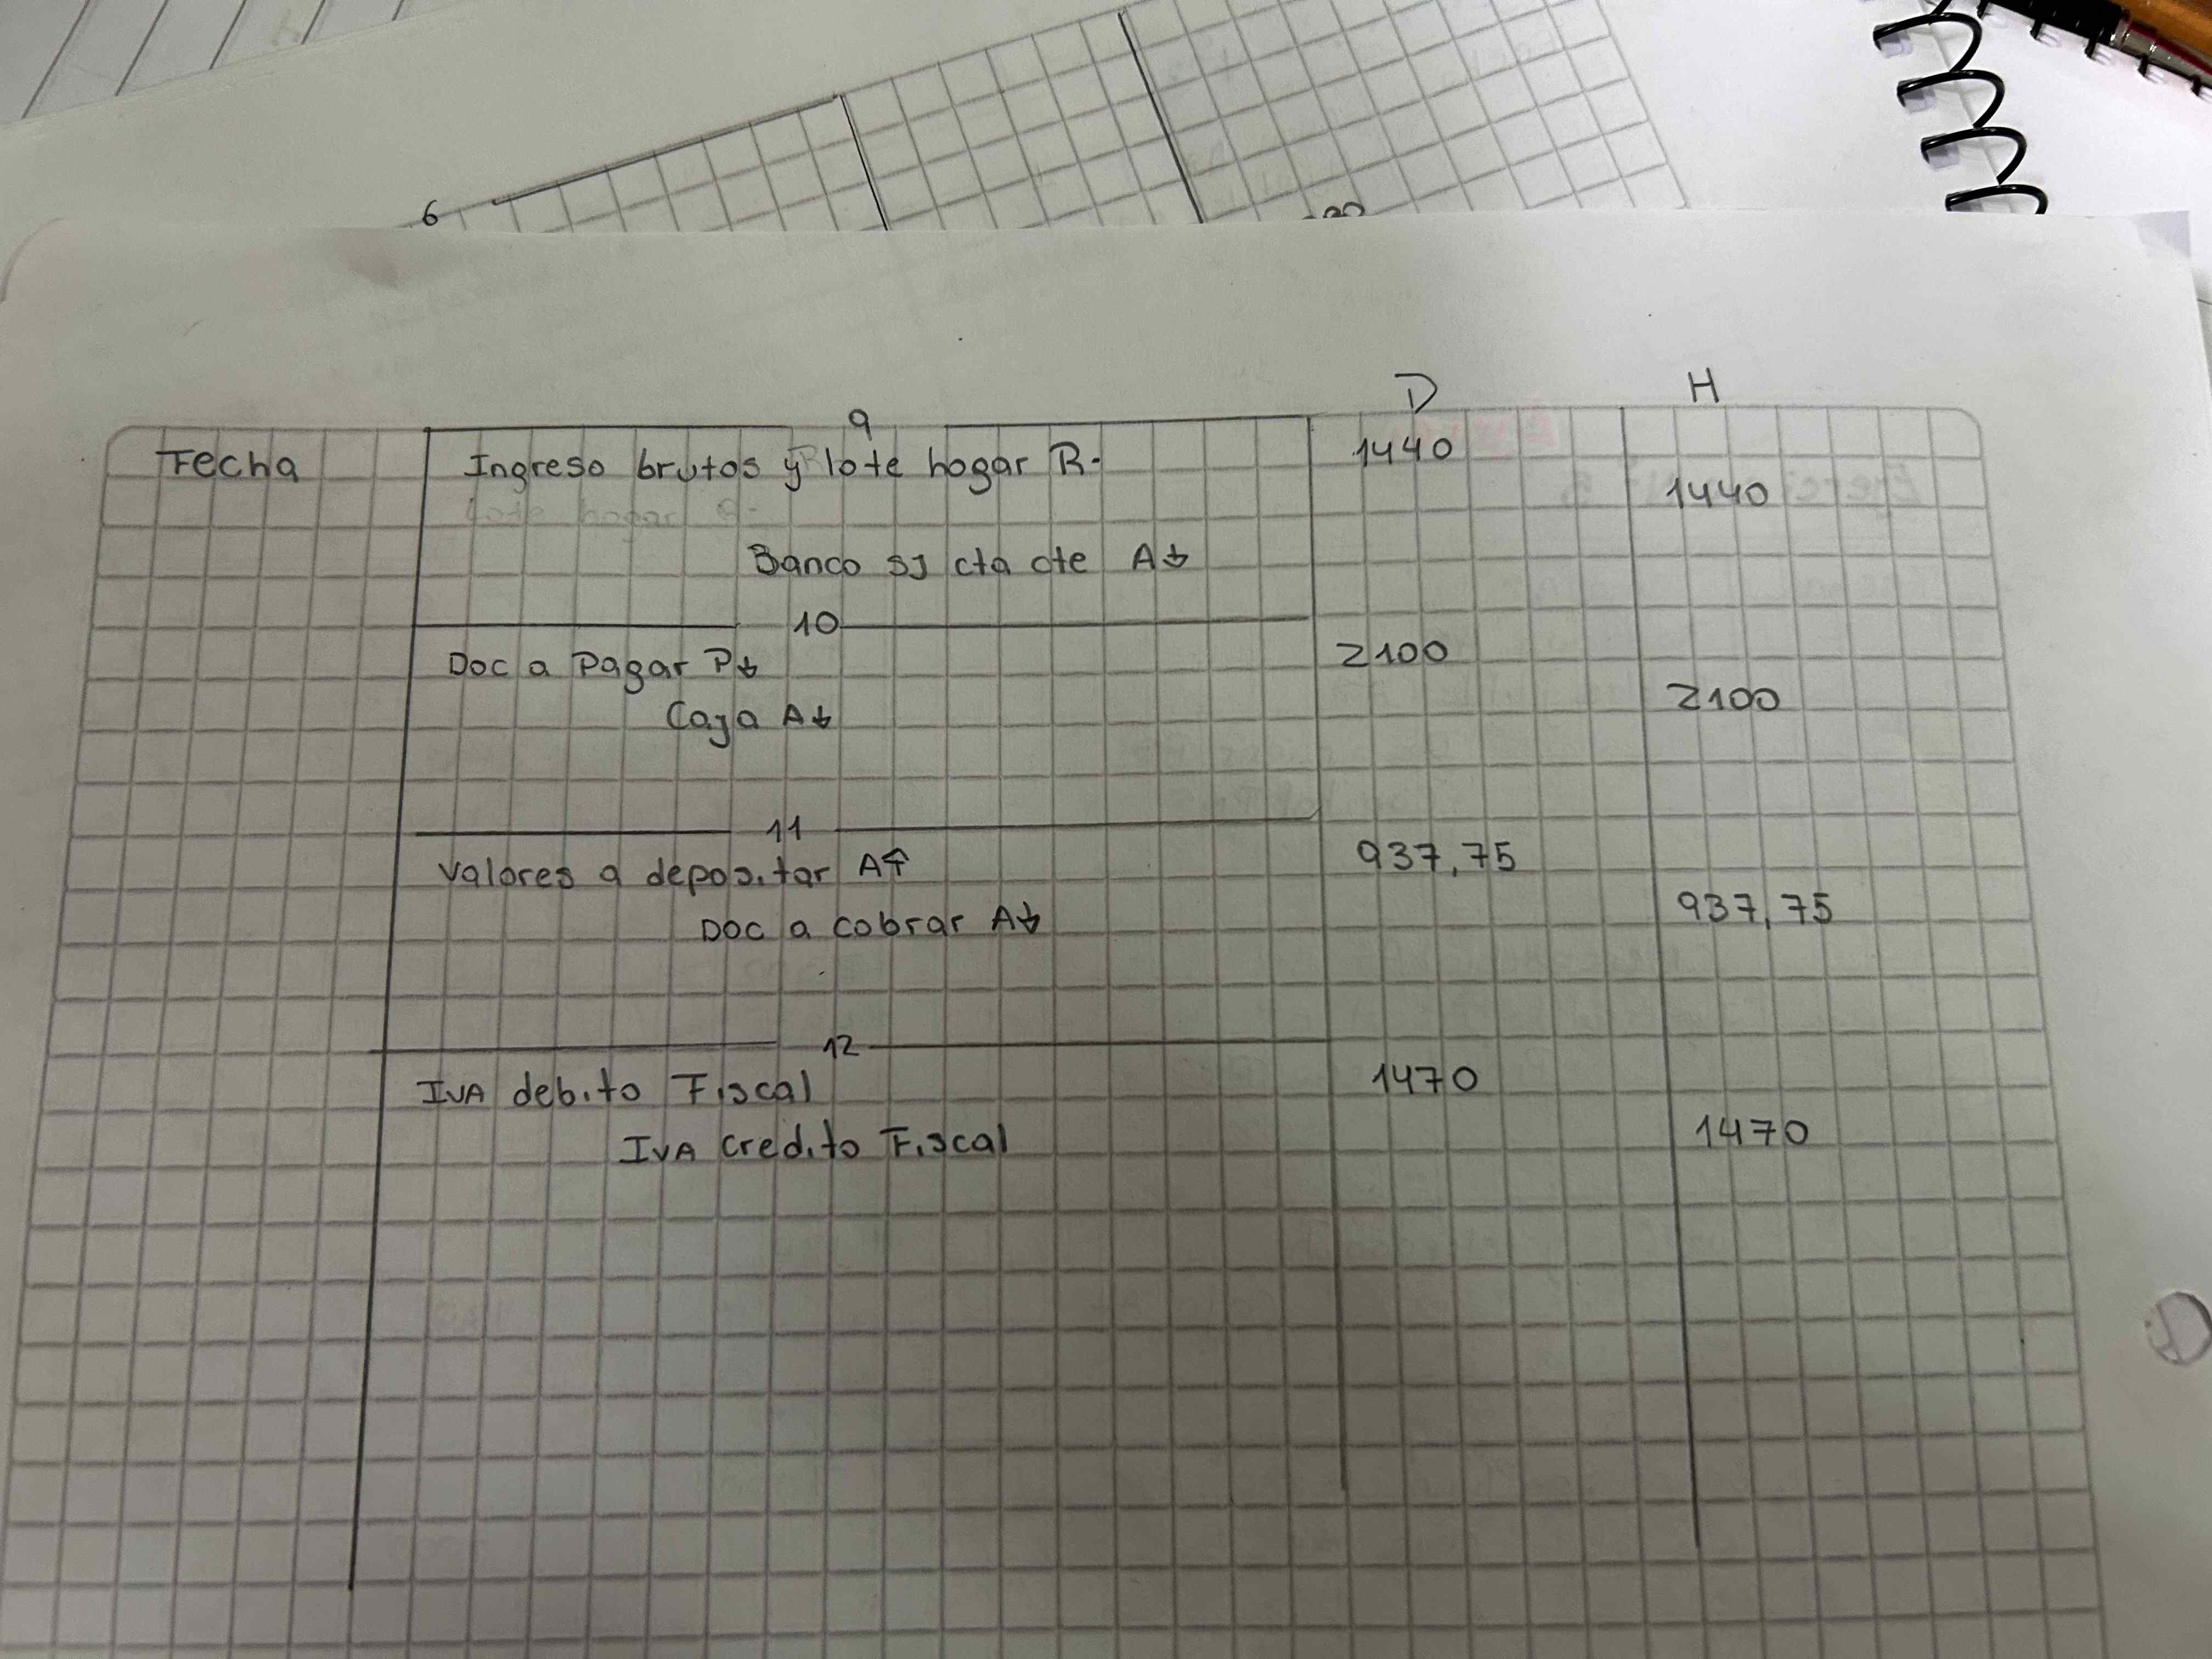 6
D H
9
Fecha Ingreso brutos y lote hogar R- 1440
1440
lote hogar R-
Banco s/ cta cte A↓
10
Doc a Pagar P↓ 2100
Caja A↓ 2100
11
Valores a depositar A↑ 937,75
Doc a cobrar A↓ 937,75
12
IVA debito Fiscal 1470
IVA credito Fiscal 1470